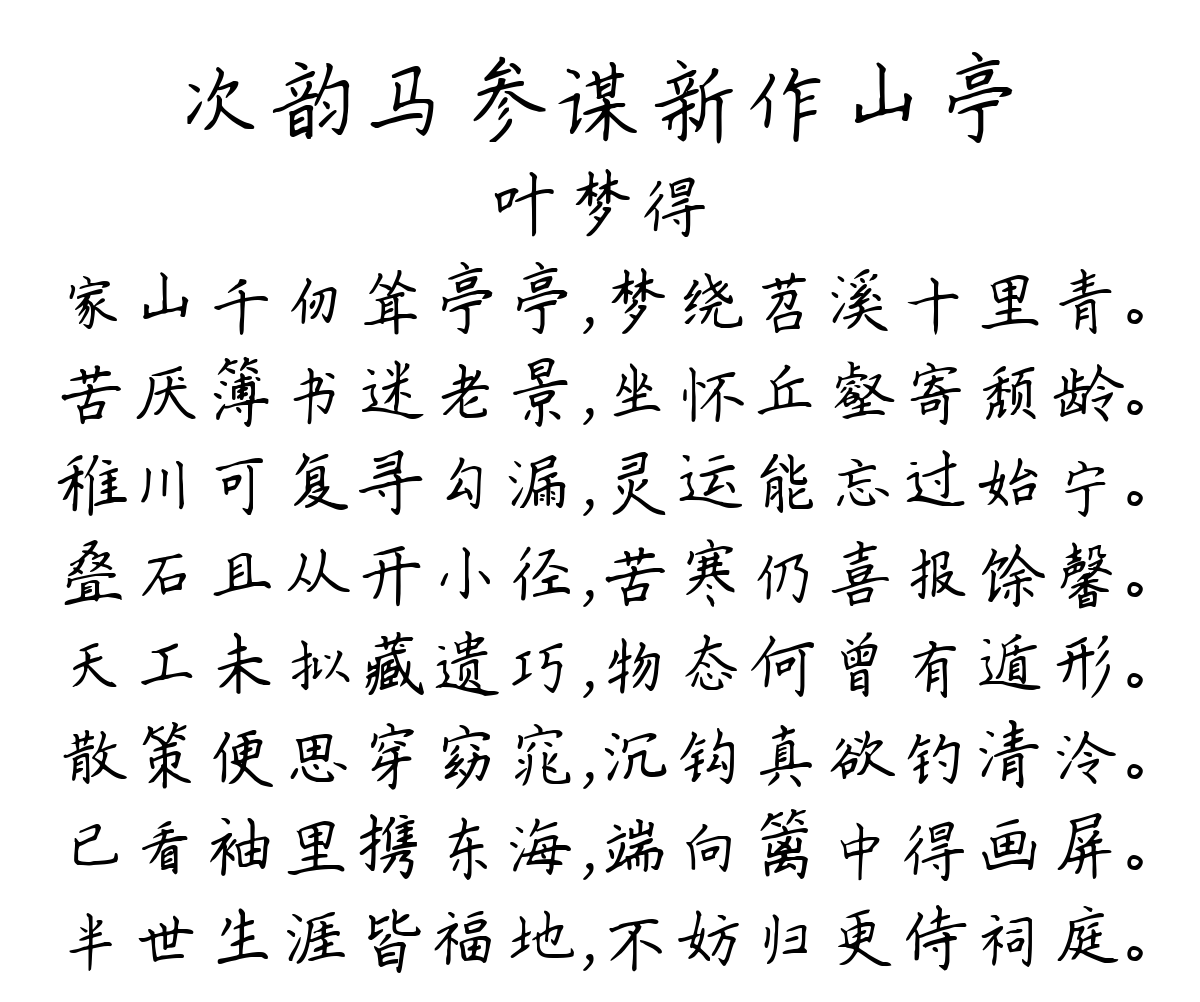 次韵马参谋新作山亭
叶梦得
家山千仞耸亭亭,梦绕苕溪十里青。
苦厌簿书迷老景,坐怀丘壑寄颓龄。
稚川可复寻勾漏,灵运能忘过始宁。
叠石且从开小径,苦寒仍喜报馀馨。
天工未拟藏遗巧,物态何曾有遁形。
散策便思穿窈窕,沉钩真欲钓清泠。
已看袖里携东海,端向篱中得画屏。
半世生涯皆福地,不妨归更侍祠庭。